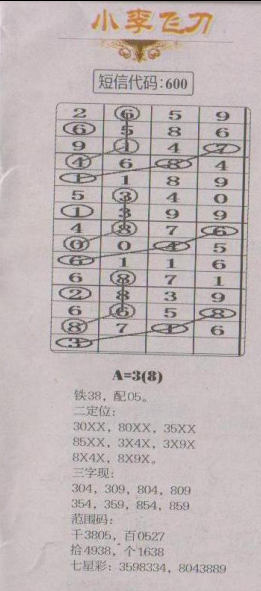 小李飞刀
短信代码:600
2 6 5 9
6 5 8 6
9 1 4 7
4 6 8 4
1 1 8 9
5 3 4 0
1 3 9 9
4 8 7 6
0 0 4 5
6 1 1 6
6 8 7 1
2 8 3 9
6 6 5 8
8 7 1 6
3
A=3(8)
铁38, 配05。
二定位:
30XX, 80XX, 35XX
85XX, 3X4X, 3X9X
8X4X, 8X9X。
三字现:
304, 309, 804, 809
354, 359, 854, 859
范围码:
千3805, 百0527
拾4938, 个1638
七星彩: 3598334, 8043889